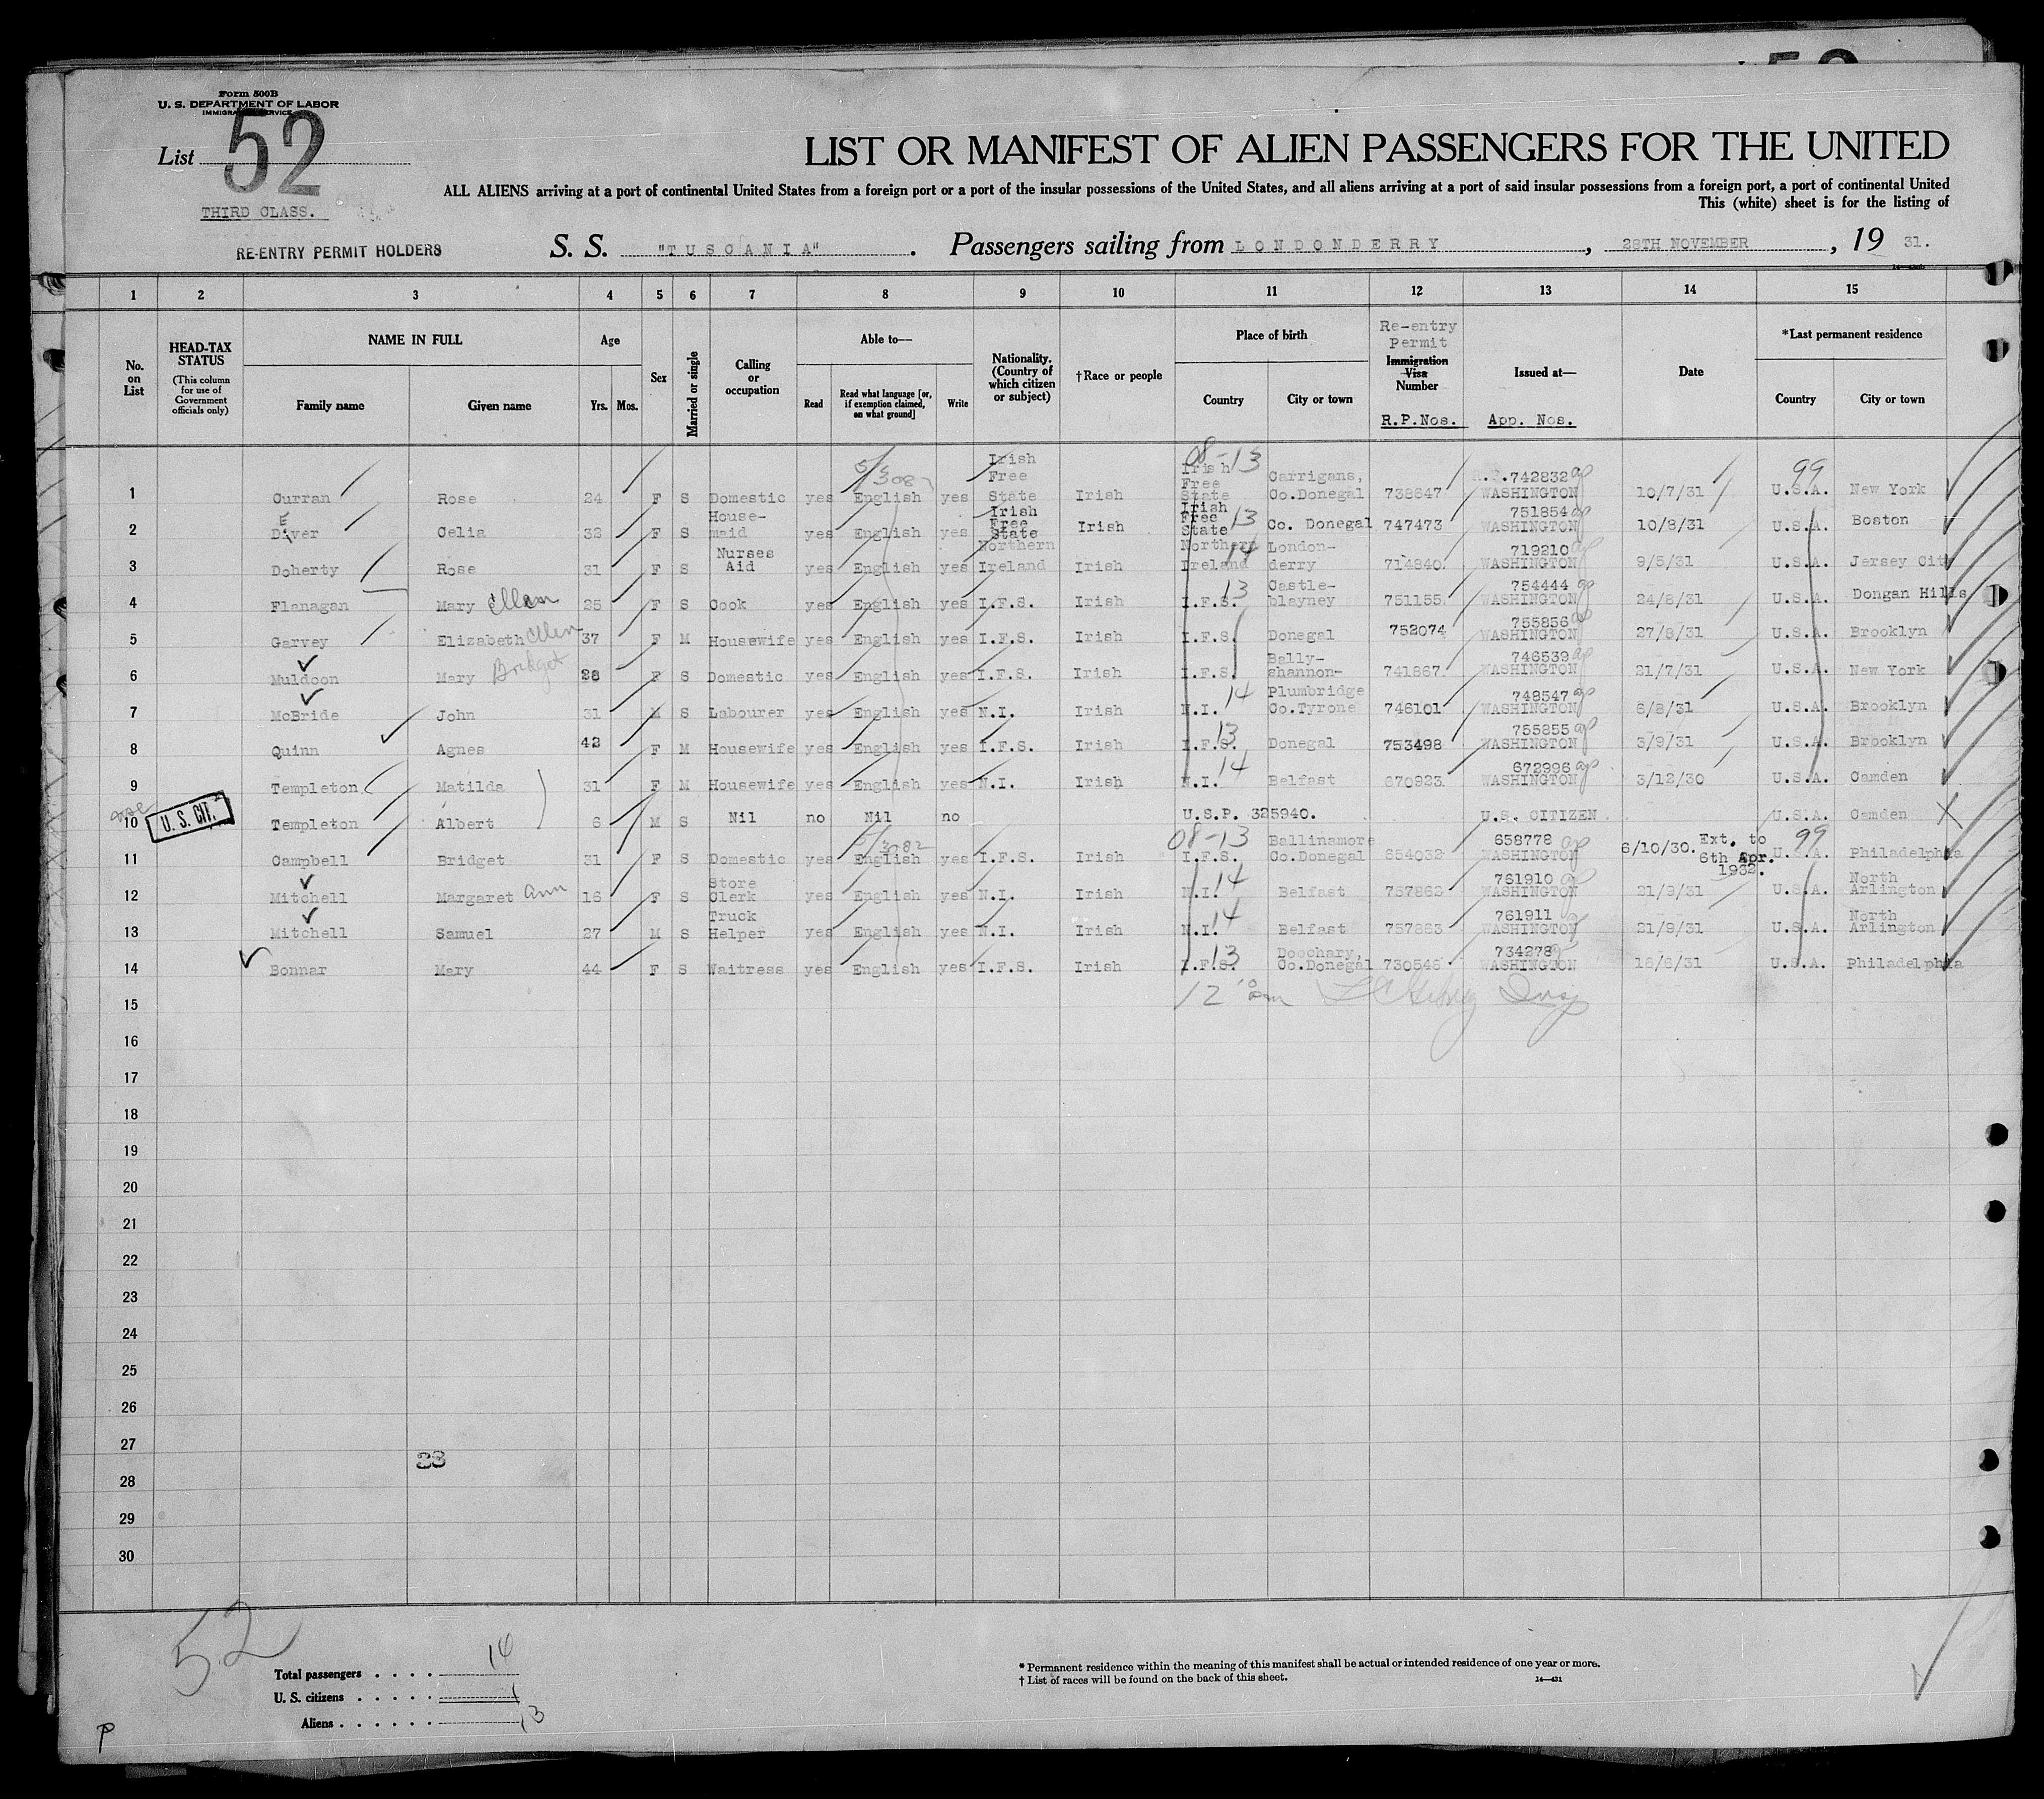 Form 500B
U. S. DEPARTMENT OF LABOR
IMMIGRATION SERVICE
List 52
THIRD CLASS.
RE-ENTRY PERMIT HOLDERS
LIST OR MANIFEST OF ALIEN PASSENGERS FOR THE UNITED
ALL ALIENS arriving at a port of continental United States from a foreign port or a port of the insular possessions of the United States, and all aliens arriving at a port of said insular possessions from a foreign port, a port of continental United
This (white) sheet is for the listing of
S. S. "TUSCANIA". Passengers sailing from LONDONDERRY, 28TH NOVEMBER, 1931.
1 2 3 4 5 6 7 8 9 10 11 12 13 14 15
No. on List
HEAD-TAX STATUS (This column for use of Government officials only)
NAME IN FULL Family name Given name
Age Yrs. Mos.
Sex
Married or single
Calling or occupation
Able to— Read Read what language [or, if exemption claimed, on what ground] Write
Nationality. (Country of which citizen or subject)
†Race or people
Place of birth Country City or town
Re-entry Permit Immigration Visa Number R.P.Nos.
Issued at— App. Nos.
Date
*Last permanent residence Country City or town
1 Curran Rose 24 F S Domestic yes English yes Irish Free State Irish 08-13 Irish Free State Carrigans, Co.Donegal 738647 742832 WASHINGTON 10/7/31 99 U.S.A. New York
2 Diver E Celia 32 F S House-maid yes English yes Irish Free State Irish Irish Free State 13 Co. Donegal 747473 751854 WASHINGTON 10/8/31 U.S.A. Boston
3 Doherty Rose 31 F S Nurses Aid yes English yes Northern Ireland Irish Northern Ireland 14 London-derry 714840 719210 WASHINGTON 9/5/31 U.S.A. Jersey City
4 Flanagan Mary Ellen 25 F S Cook yes English yes I.F.S. Irish I.F.S. 13 Castle-blayney 751155 754444 WASHINGTON 24/8/31 U.S.A. Dongan Hills
5 Garvey Elizabeth Ellen 37 F M Housewife yes English yes I.F.S. Irish I.F.S. Donegal 752074 755856 WASHINGTON 27/8/31 U.S.A. Brooklyn
6 Muldoon Mary Bridget 28 F S Domestic yes English yes I.F.S. Irish I.F.S. Bally-shannon- 741867 746539 WASHINGTON 21/7/31 U.S.A. New York
7 McBride John 31 M S Labourer yes English yes N.I. Irish N.I. 14 Plumbridge Co.Tyrone 746101 748547 WASHINGTON 6/8/31 U.S.A. Brooklyn
8 Quinn Agnes 42 F M Housewife yes English yes I.F.S. Irish I.F.S. 13 Donegal 753498 755855 WASHINGTON 3/9/31 U.S.A. Brooklyn
9 Templeton Matilda 31 F M Housewife yes English yes N.I. Irish N.I. 14 Belfast 670923 672996 WASHINGTON 3/12/30 U.S.A. Camden
10 U. S. CIT. Templeton Albert 6 M S Nil no Nil no U.S.P. 325940. U.S. CITIZEN U.S.A. Camden
11 Campbell Bridget 31 F S Domestic yes English yes I.F.S. Irish 08-13 I.F.S. Ballinamore Co.Donegal 654032 658778 WASHINGTON 6/10/30. Ext. to 6th Apr. 1932. 99 U.S.A. Philadelphia
12 Mitchell Margaret Ann 16 F S Store Clerk yes English yes N.I. Irish N.I. 14 Belfast 757862 761910 WASHINGTON 21/9/31 U.S.A. North Arlington
13 Mitchell Samuel 27 M S Truck Helper yes English yes N.I. Irish N.I. 14 Belfast 757863 761911 WASHINGTON 21/9/31 U.S.A. North Arlington
14 Bonnar Mary 44 F S Waitress yes English yes I.F.S. Irish I.F.S. 13 Doochary, Co.Donegal 730546 734278 WASHINGTON 16/6/31 U.S.A. Philadelphia
15
16
17
18
19
20
21
22
23
24
25
26
27
28
29
30
52
Total passengers . . . . 14
U. S. citizens . . . . . 1
Aliens . . . . . . 13
* Permanent residence within the meaning of this manifest shall be actual or intended residence of one year or more.
† List of races will be found on the back of this sheet.
14—431
P